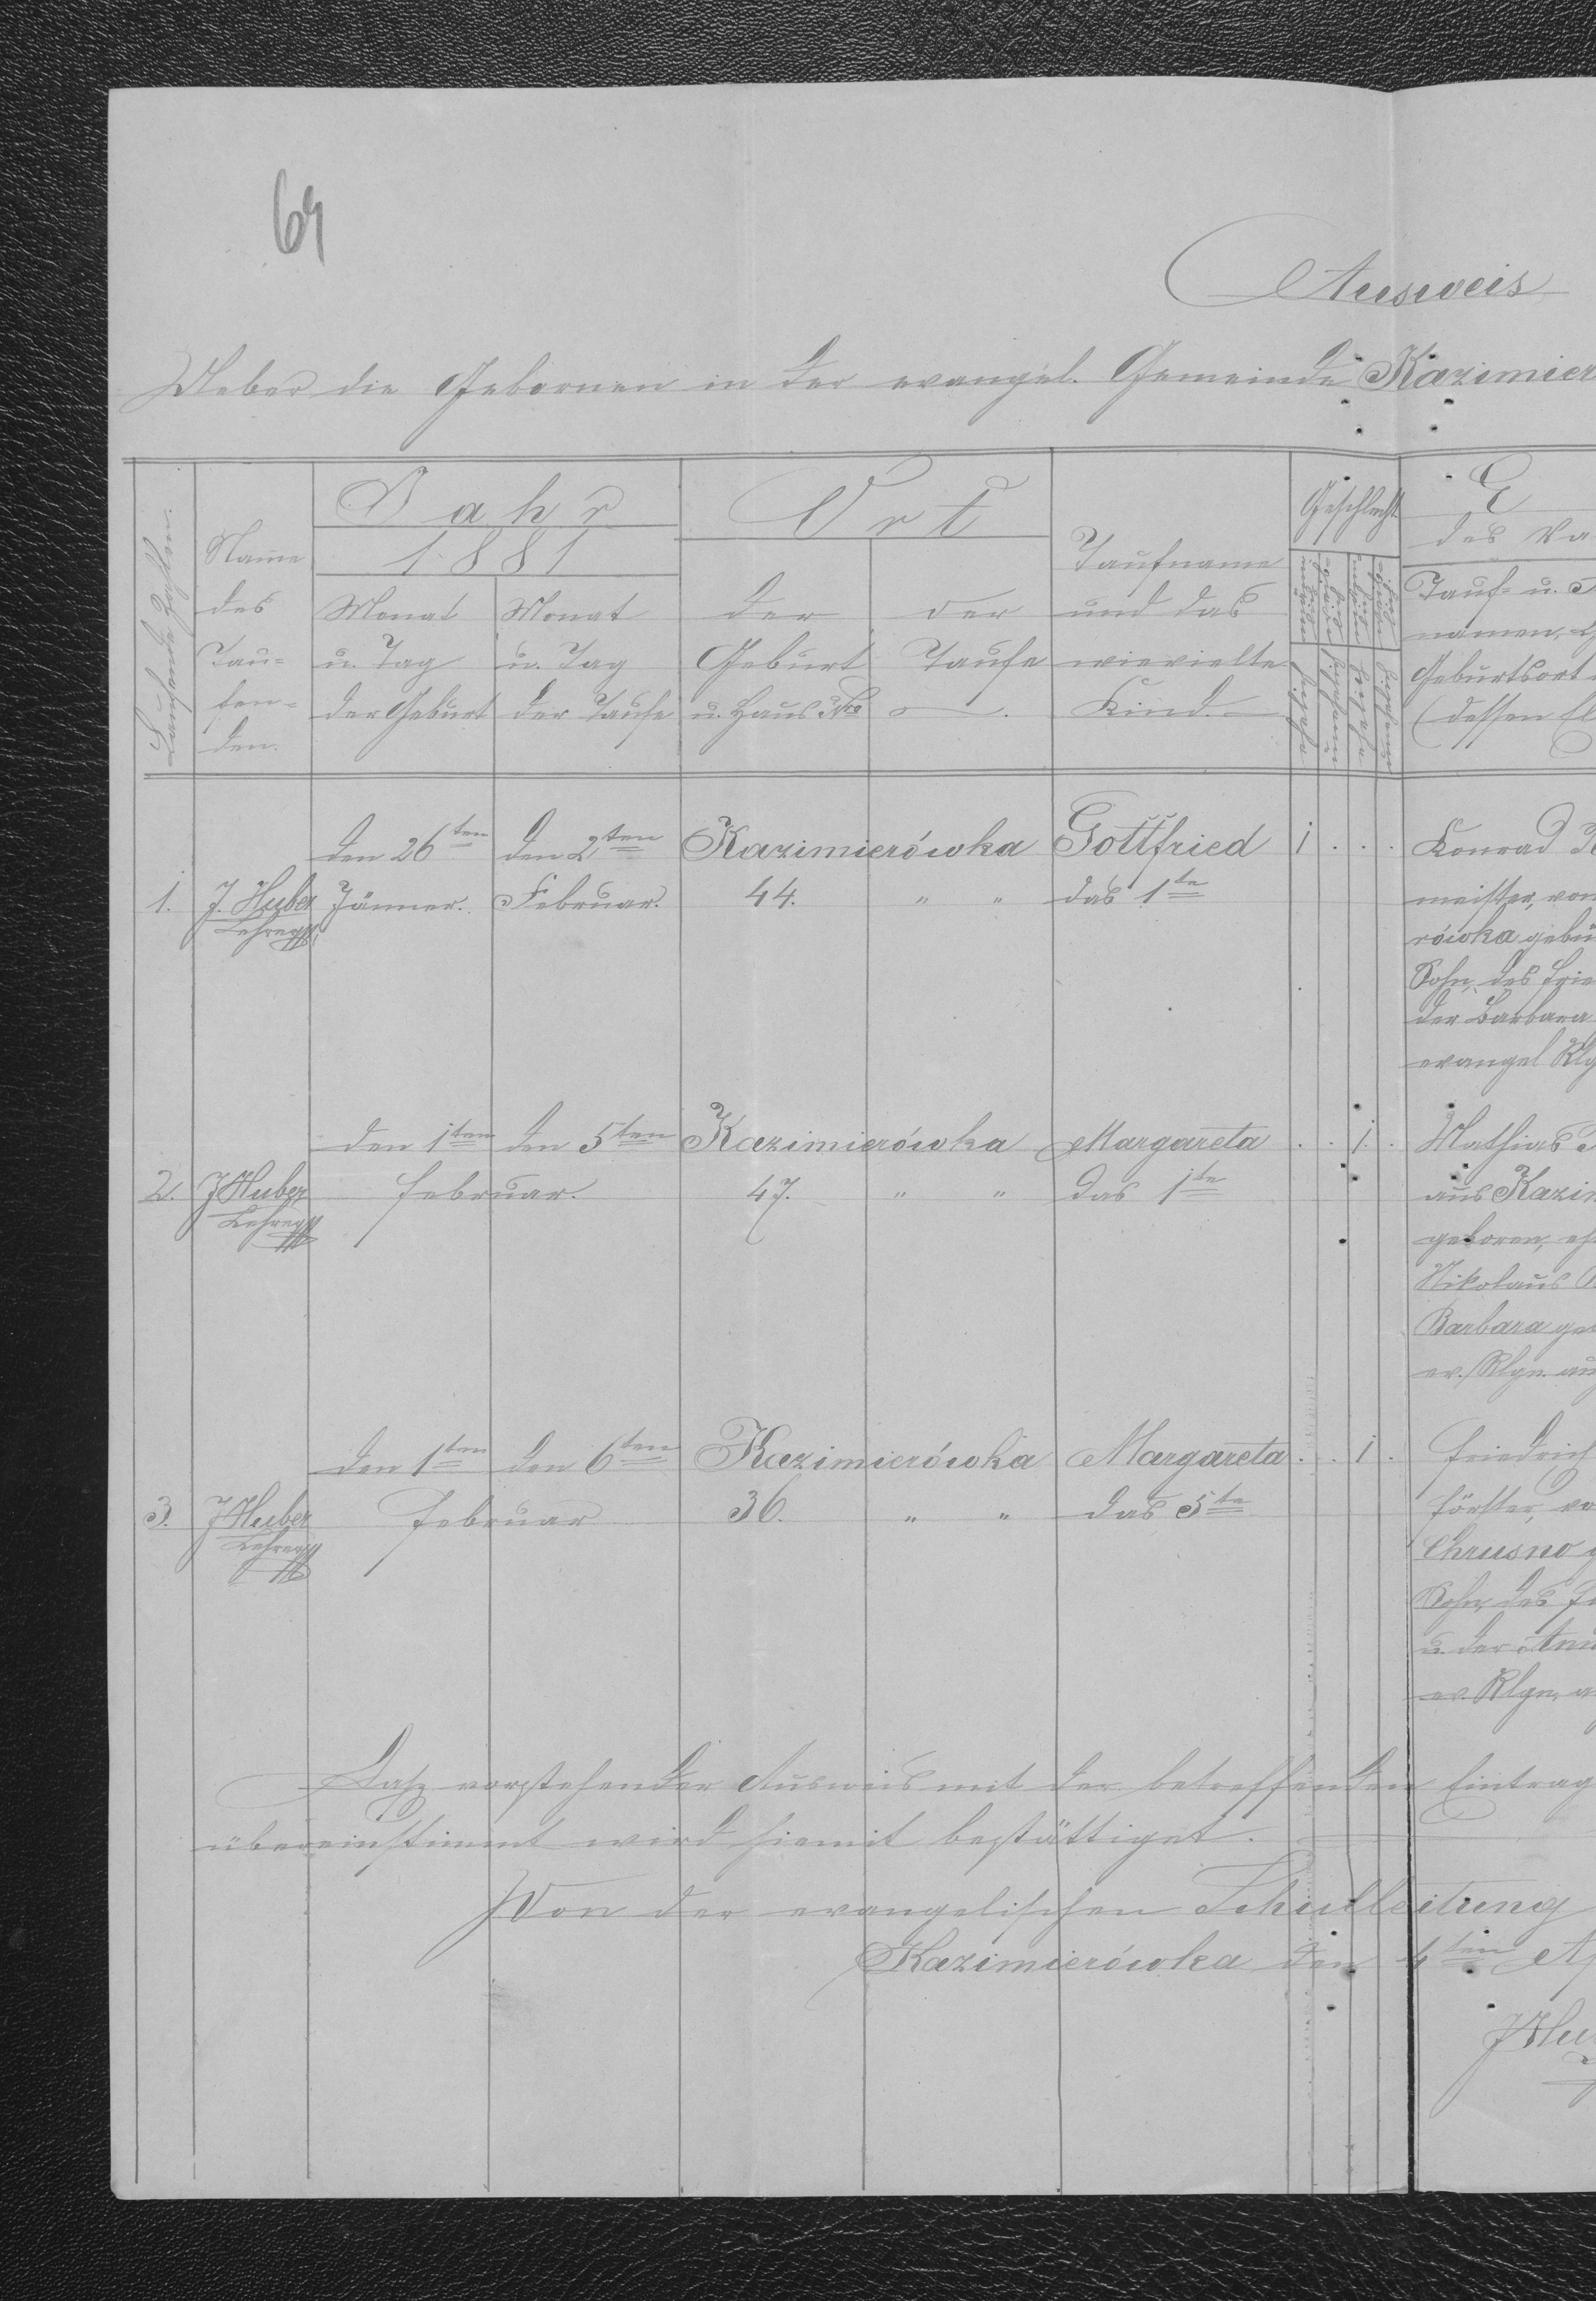 64
Ausweis
Ueber die Gebornen in der evangel. Gemeinde Kazimier
Laufende Zahlen.
Name
des
Tau=
fen=
den.
Jahr
1881
Monat
u. Tag
der Geburt
Monat
u. Tag
der Taufe
Ort
der
Geburt
u. Haus Nro
der
Taufe
Taufname
und das
wievielte
Kind.
Geschlecht
E
des Va
Tauf- u.
namen,
Geburtsort
(dessen El
1.
J. Huber
Lehrer
den 26ten
Jänner.
den 2ten
Februar.
Kazimierówka
44. " "
Gottfried
das 1te
1 . . .
Konrad
meister, von
rówka gebü
Sohn, des Frie
der Barbara
evangel Rlg
2.
J Huber
Lehrer
den 1ten den 5ten
Februar.
Kazimierówka
47. " "
Margareta
das 1te
. . 1 .
Mathias
aus Kazim
geboren, eh
Nikolaus
Barbara ge
ev. Rlgn. au
3.
J Huber
Lehrer
den 1ten den 6ten
Februar
Kazimierówka
36. " "
Margareta
das 5te
. . 1 .
Friedrich
Förster, vo
Chrusno g
Sohn, des
u. der Ann
ev. Rlgn. a
Daß vorstehender Ausweis mit der betreffenden Eintrag
übereinstimmt wird hiemit bestättiget.
Von der evangelischen Schulleitung
Kazimierówka den 4ten A
J Hu